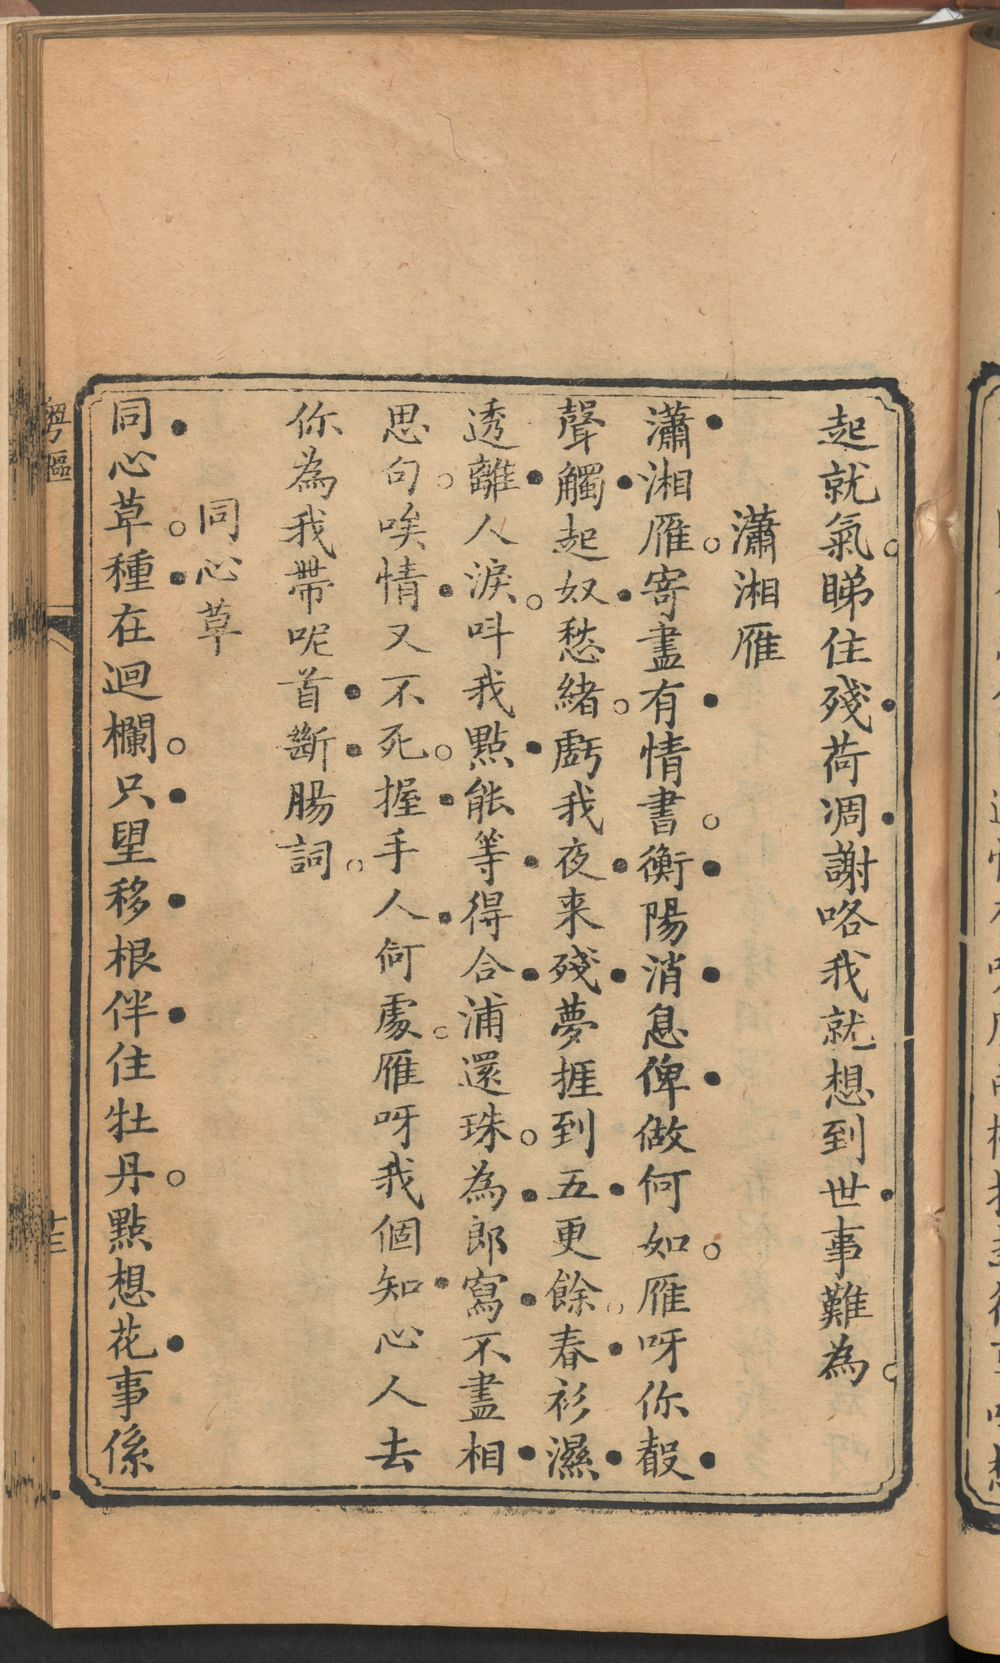 起就氣。睇住殘荷凋謝咯我就想到世事難為。
瀟湘雁
瀟湘雁。寄盡有情書。衡陽消息俾做何如。雁呀你轂
聲觸起奴愁緒。虧我夜来殘夢捱到五更餘。春衫濕
透離人淚。呌我點能等得合浦還珠。為郎寫不盡相
思句。唉情又不死。握手人何處。雁呀我個知心人去
你為我帶呢首斷腸詞。
同心草
同心草。種在迴欄。只望移根伴住牡丹。點想花事係
粵謳
十三